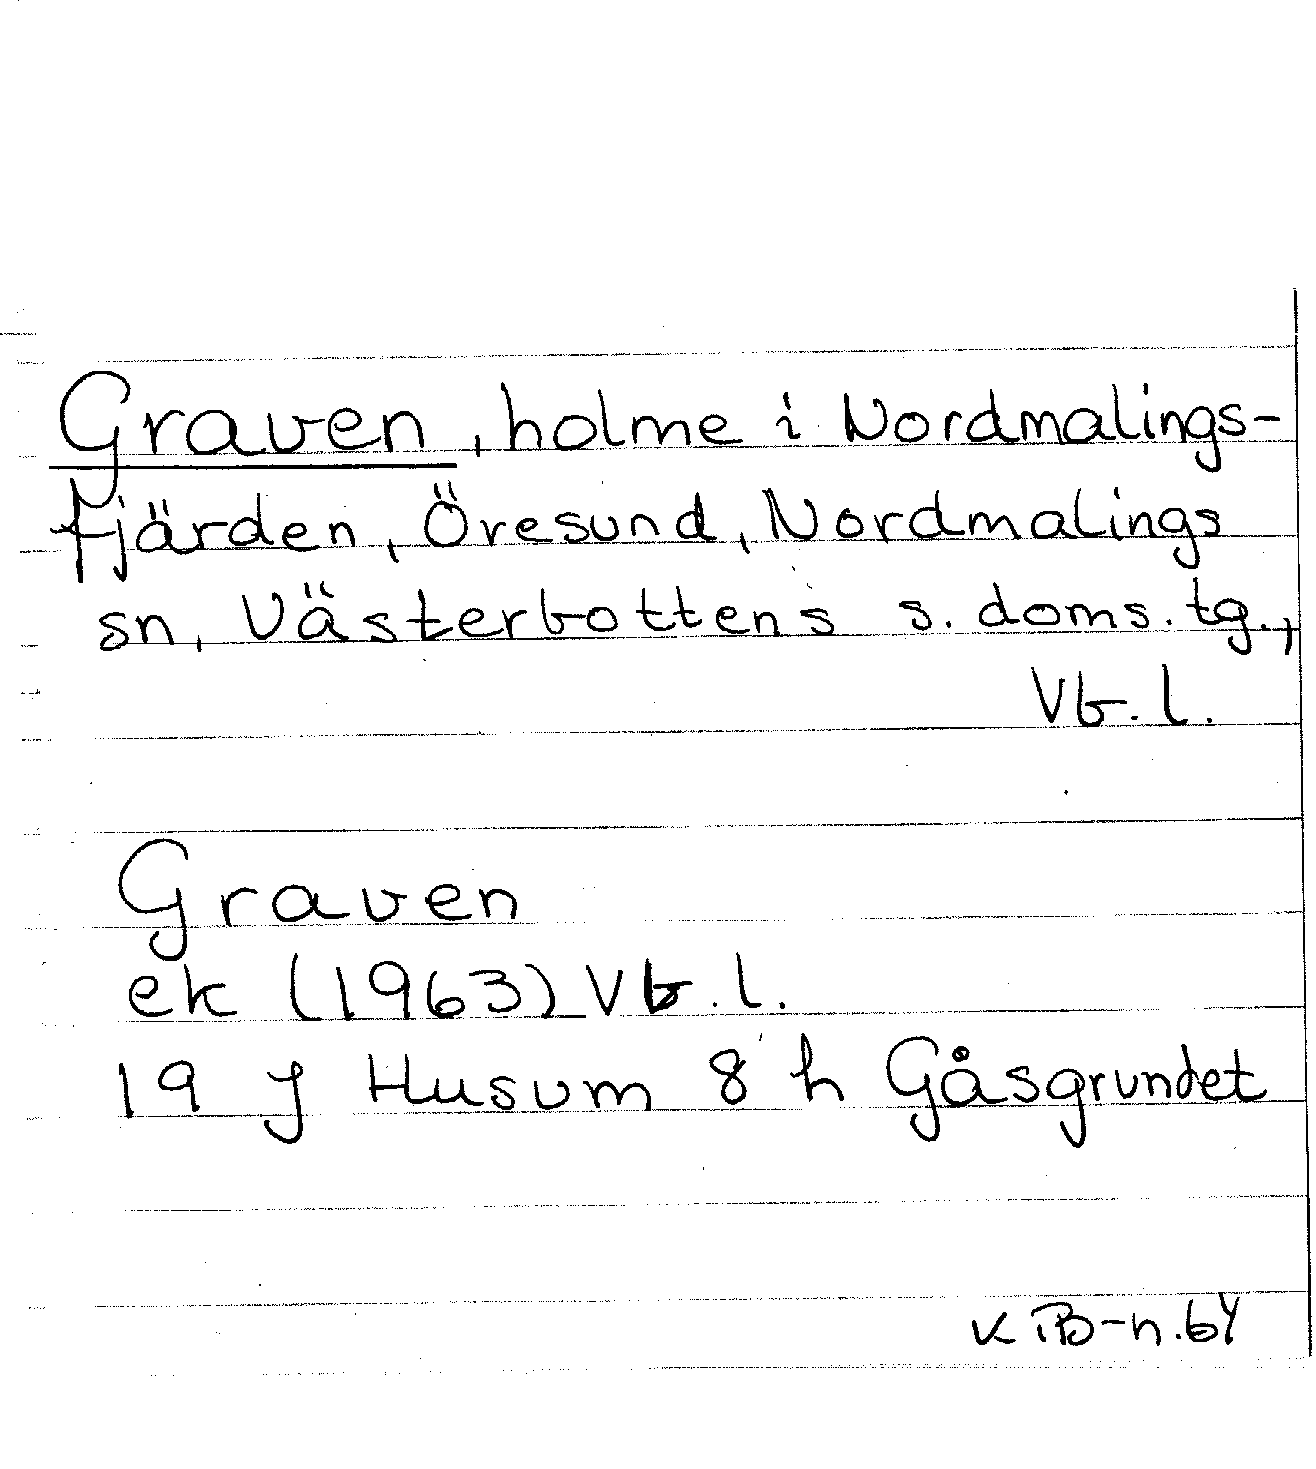 Graven, holme i Nordmalings-
fjärden, Öresund, Nordmalings
sn, Västerbottens s. doms. tg.,
Vb. l.
Graven
ek (1963) Vb. l.
19 J Husum 8 h Gåsgrundet